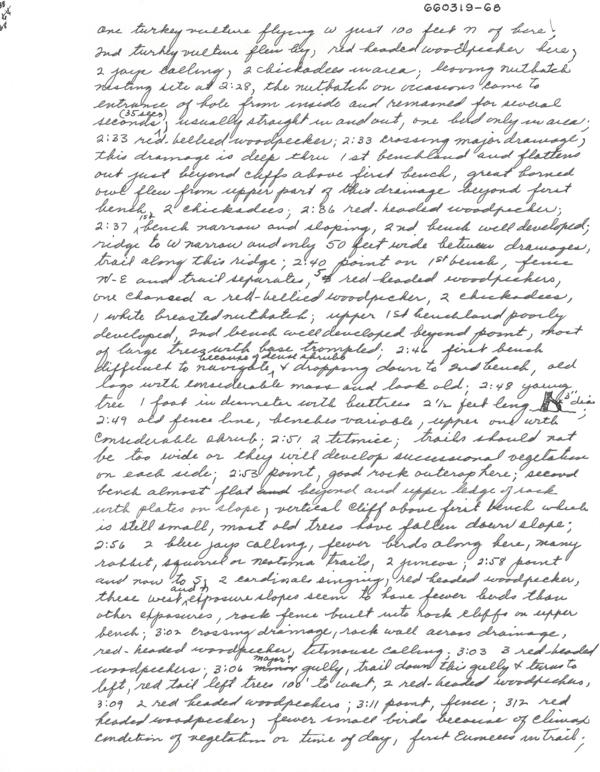 660319-68
One turkey vulture flying W just 100 feet N of here;
2nd turkey vulture flew by, red-headed woodpecker here,
2 jays calling, 2 chickadees in area; leaving nuthatch
nesting site at 2:28, the nuthatch on occasions came to
entrance of hole from inside and remained for several
seconds (35 sec), usually straight in and out, one bird only in area;
2:33 red-bellied woodpecker; 2:33 crossing major drainage,
this drainage is deep thru 1st benchland and flattens
out just beyond cliffs above first bench, great horned
owl flew from upper part of this drainage beyond first
bench, 2 chickadees; 2:36 red-headed woodpecker;
2:37 1st bench narrow and sloping, 2nd bench well developed;
ridge to W narrow and only 50 feet wide between drainages,
trail along this ridge; 2:40 point on 1st bench, fence
N-E and trail separates, 5 red headed woodpeckers,
one chansed a red-bellied woodpecker, 2 chickadees,
1 white breasted nuthatch; upper 1st benchland poorly
developed, 2nd bench well developed beyond point, most
of large trees with base trompled; 2:46 first bench
difficult to navigate because of dense shrubs & dropping down to 2nd bench, old
logs with considerable moss and look old; 2:48 young
tree 1 foot in diameter with buttress 2 1/2 feet long 3" dia;
2:49 old fence line, benches variable, upper one with
considerable shrub; 2:51 2 titmice; trails should not
be too wide or they will develop successional vegetation
on each side; 2:53 point, good rock outcrop here; second
bench almost flat and beyond and upper ledge of rock
with plates on slope, vertical cliff above first bench which
is still small, most old trees have fallen down slope;
2:56 2 blue jays calling, fewer birds along here, many
rabbit, squirrel or neotoma trails, 2 juncos; 2:58 point
and now to S, 2 cardinals singing, red headed woodpecker,
these west and N exposure slopes seem to have fewer birds than
other exposures, rock fence built into rock cliffs on upper
bench; 3:02 crossing drainage, rock wall across drainage,
red-headed woodpecker, titmouse calling; 3:03 3 red-headed
woodpeckers; 3:06 minor major? gully, trail down this gully & turns to
left, red tail left trees 100' to west, 2 red-headed woodpeckers,
3:09 2 red headed woodpeckers; 3:11 point, fence; 312 red
headed woodpecker; fewer small birds because of climax
condition of vegetation or time of day, first Eumeces in trail;